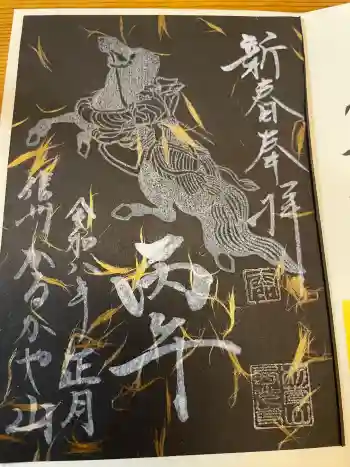 新春奉拝
丙午
令和八年
正月
信州かるかや山